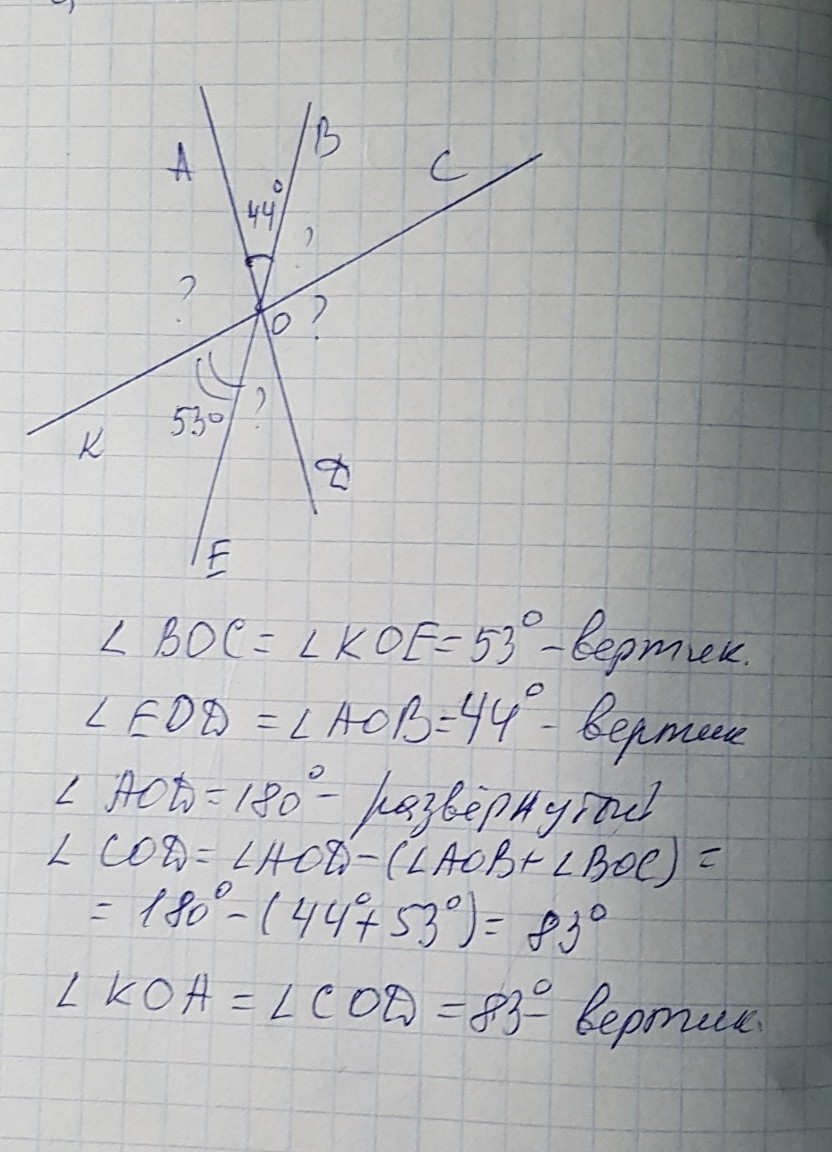 A
B
C
44°
?
?
O
?
53°
?
K
D
E
∠ BOC = ∠ KOE = 53° - вертик.
∠ EOD = ∠ AOB = 44° - вертик
∠ AOD = 180° - развёрнутый
∠ COD = ∠AOD - (∠AOB + ∠BOC) =
= 180° - (44° + 53°) = 83°
∠ KOA = ∠ COD = 83° - вертик.